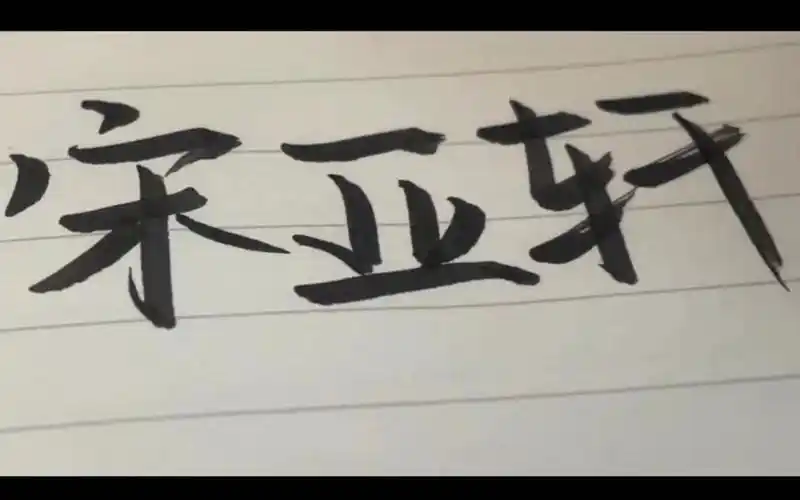 宋亚轩